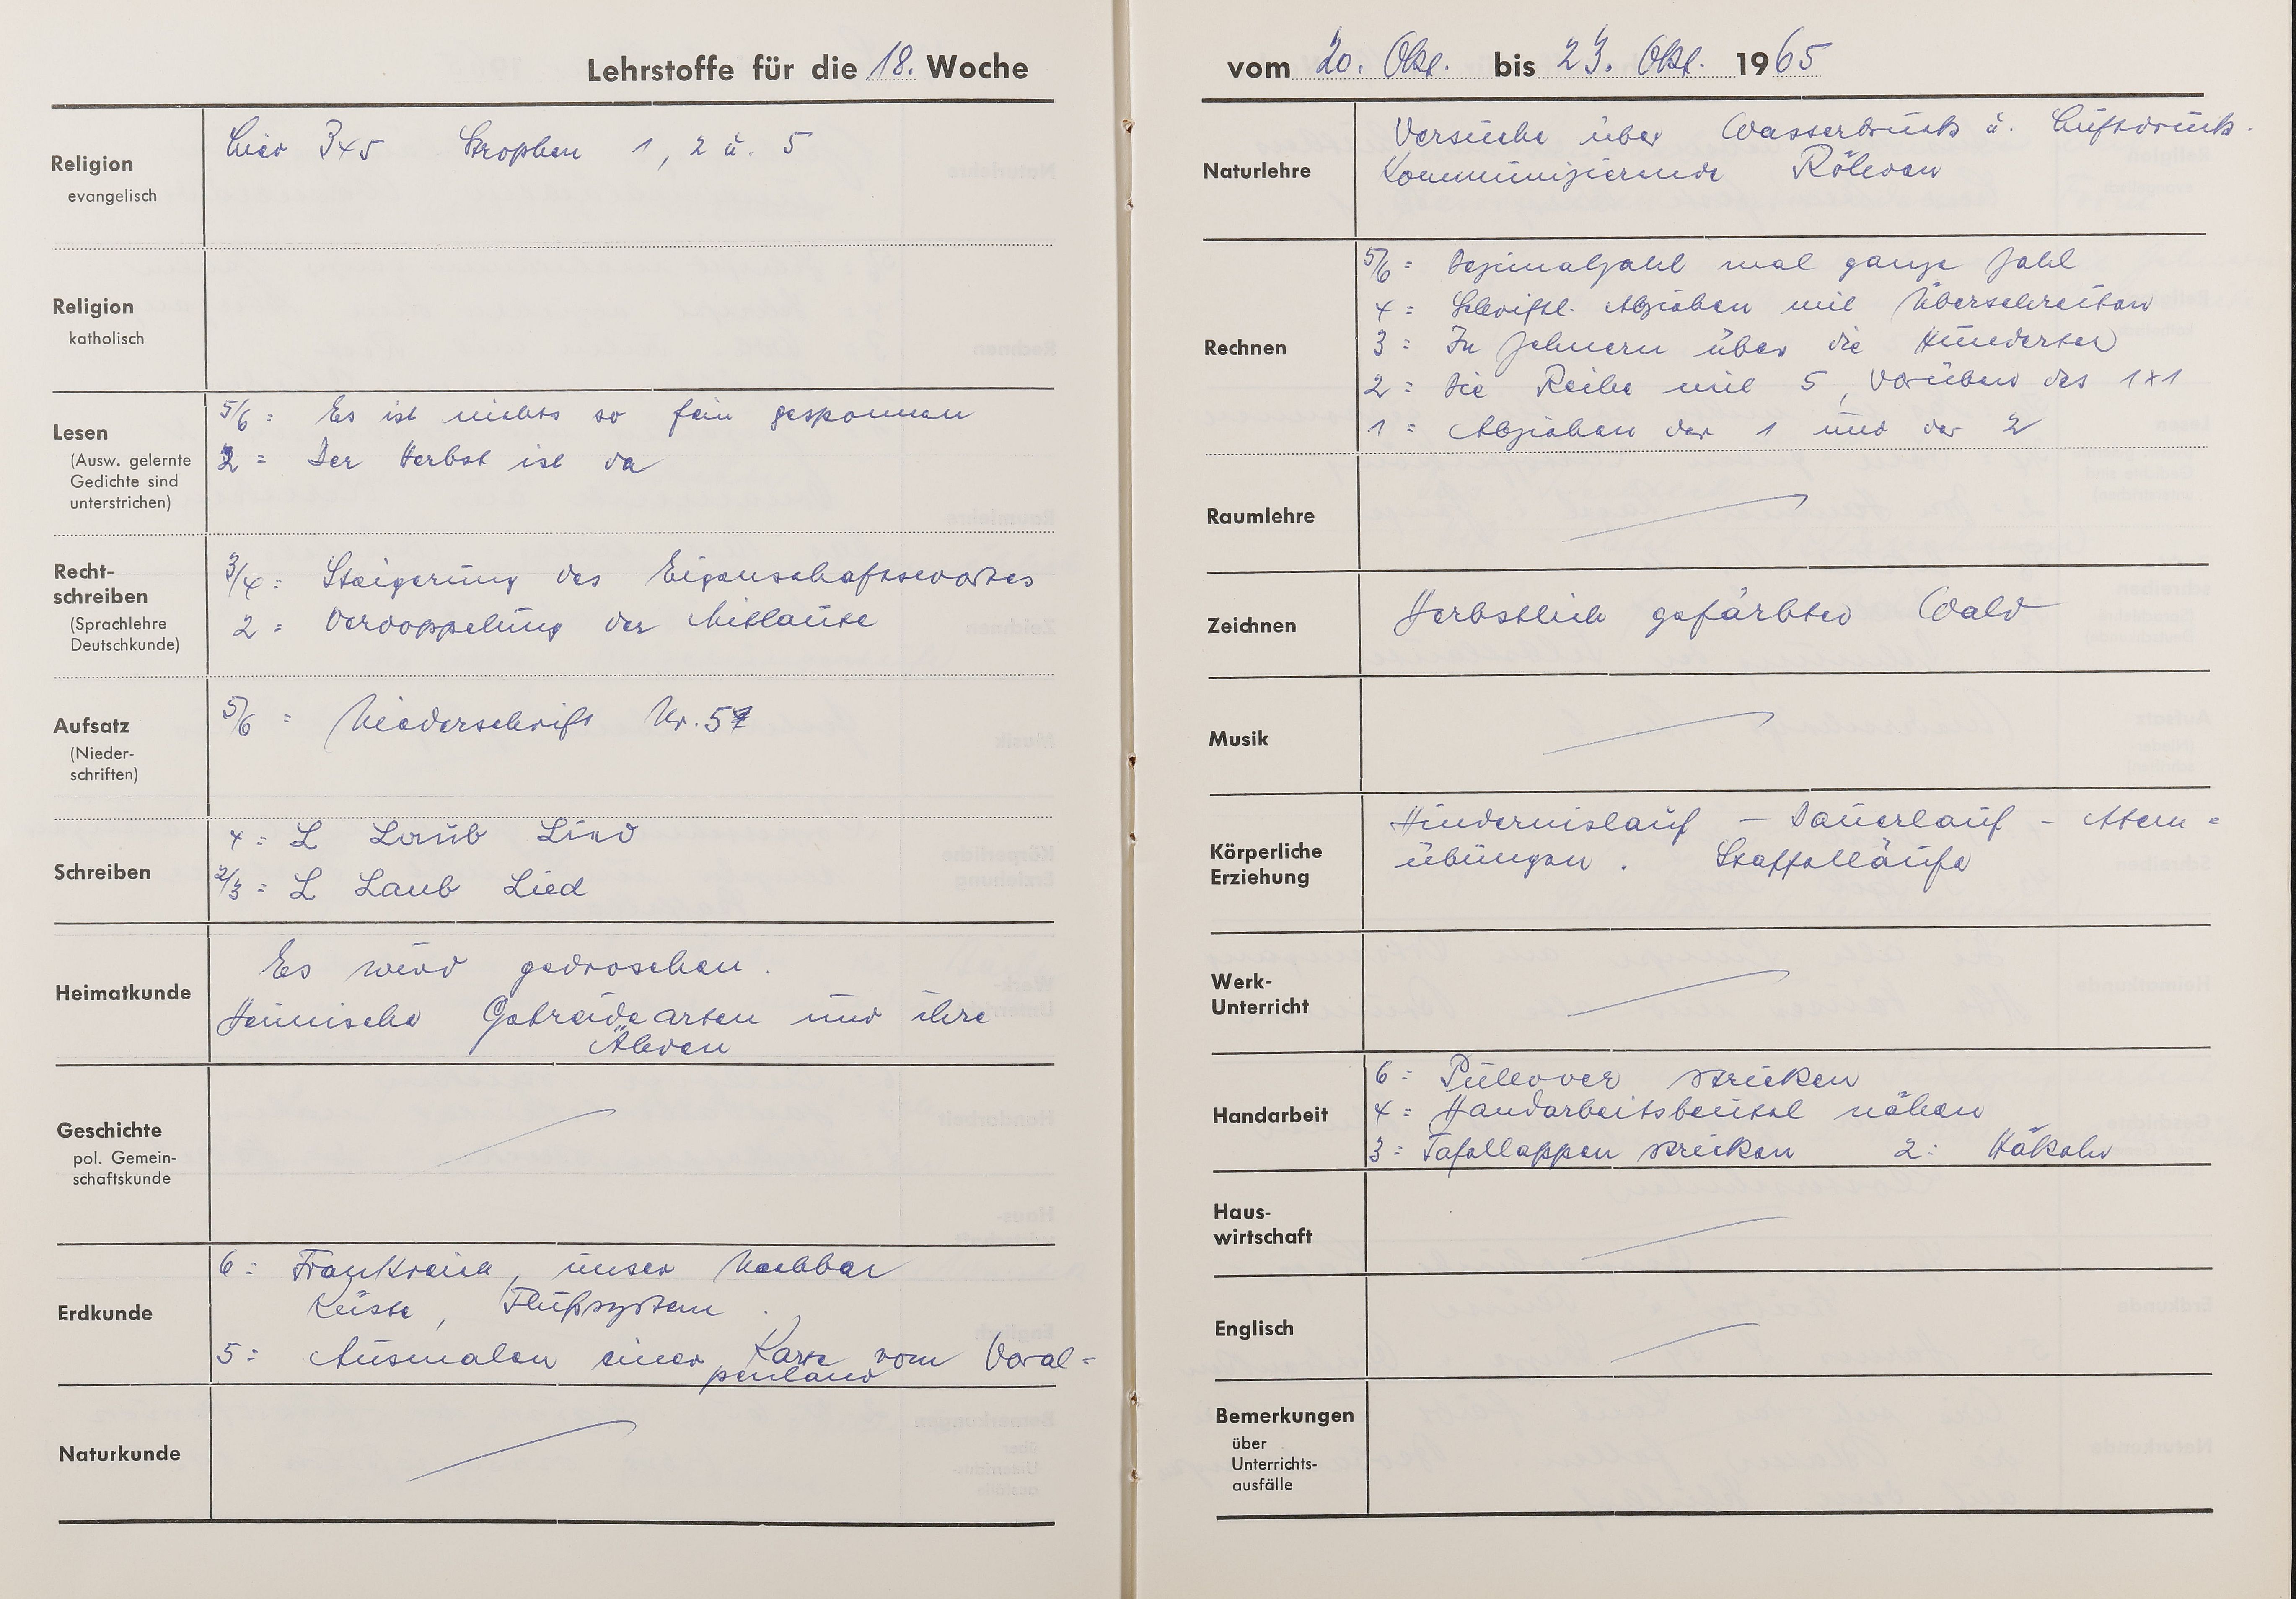 Lehrstoffe für die 18. Woche
Religion
evangelisch
Lied 345 Strophen 1, 2 u. 5
Religion
katholisch
Lesen
(Ausw. gelernte
Gedichte sind
unterstrichen)
5/6 = Es ist nichts so fein gesponnen
2 = Der Herbst ist da
Recht-
schreiben
(Sprachlehre
Deutschkunde)
3/4 = Steigerung des Eigenschaftswortes
2 = Verdoppelung der Mitlaute
Aufsatz
(Nieder-
schriften)
5/6 = Niederschrift Nr. 5
Schreiben
4 = L Laub Lied
2/3 = L Laub Lied
Heimatkunde
Es wird gedroschen.
Heimische Getreidearten und ihre
Ähren
Geschichte
pol. Gemein-
schaftskunde
Erdkunde
6 = Frankreich, unser Nachbar
Küste, Flußsystem.
5 = Ausmalen einer Karte vom Voral=
penland
Naturkunde
vom 20. Okt. bis 23. Okt. 1965
Naturlehre
Versuche über Wasserdruck u. Luftdruck.
Kommunizierende Röhren
Rechnen
5/6 = Dezimalzahl mal ganze Zahl
4 = Schriftl. Abziehen mit Überschreiten
3 = In Zehnern über die Hunderter
2 = Die Reihe mit 5, Vorüben des 1x1
1 = Abziehen der 1 und der 2
Raumlehre
Zeichnen
Herbstlich gefärbter Wald
Musik
Körperliche
Erziehung
Hindernislauf - Dauerlauf - Atem=
übungen. Staffelläufe
Werk-
Unterricht
Handarbeit
6 = Pullover stricken
4 = Handarbeitsbeutel nähen
3 = Tafellappen stricken 2: Häkeln
Haus-
wirtschaft
Englisch
Bemerkungen
über
Unterrichts-
ausfälle